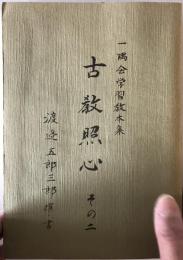 一隅会学習教本集
古教照心 その二
渡辺五郎三郎撰書